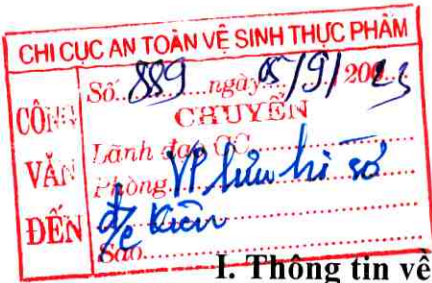 CHI CỤC AN TOÀN VỆ SINH THỰC PHẨM
CÔNG VĂN ĐẾN
Số 889 ngày 05/9/2023
CHUYỂN
Lãnh đạo CC
Phòng VP lưu hồ sơ
đ/c Kiên
Sao
I. Thông tin về